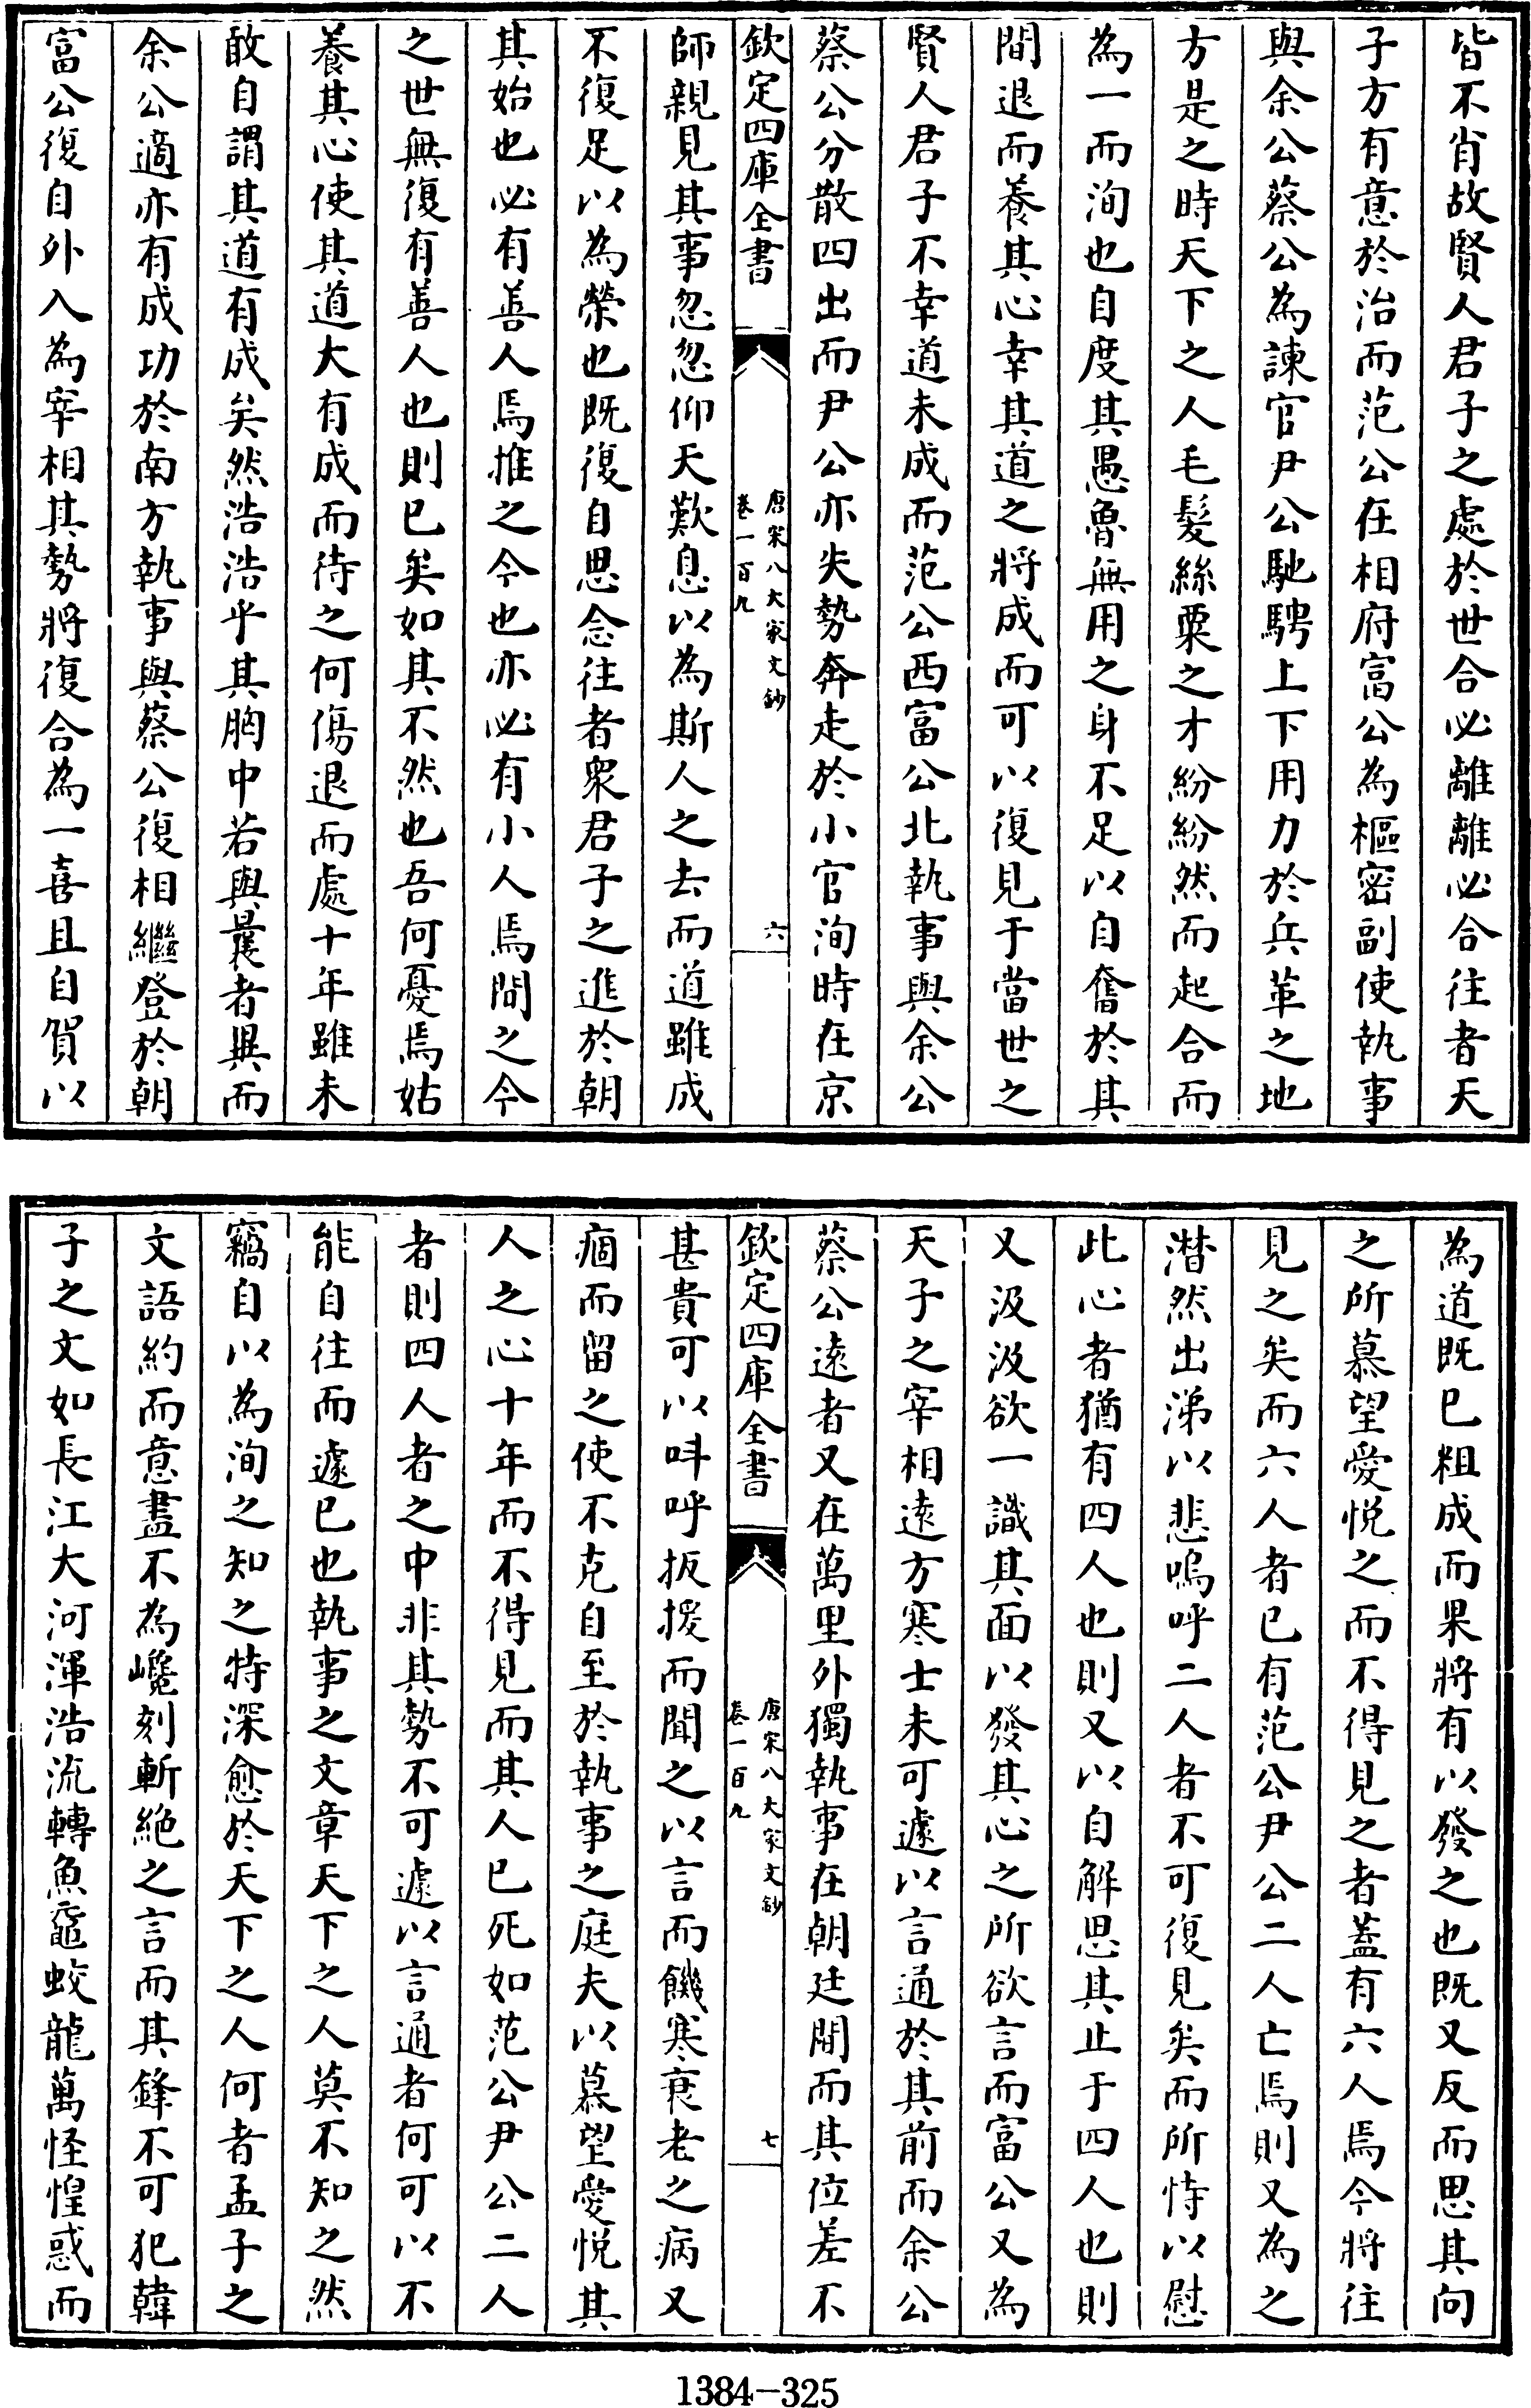 皆不肖故賢人君子之處於世合必離離必合往者天
子方有意於治而范公在相府富公為樞密副使執事
與余公蔡公為諫官尹公馳騁上下用力於兵革之地
方是之時天下之人毛髮絲粟之才紛紛然而起合而
為一而洵也自度其愚魯無用之身不足以自奮於其
間退而養其心幸其道之將成而可以復見于當世之
賢人君子不幸道未成而范公西富公北執事與余公
蔡公分散四出而尹公亦失勢奔走於小官洵時在京
欽定四庫全書
唐宋八大家文鈔
卷一百九
六
師親見其事忽忽仰天歎息以為斯人之去而道雖成
不復足以為榮也既復自思念往者衆君子之進於朝
其始也必有善人焉推之今也亦必有小人焉間之今
之世無復有善人也則已矣如其不然也吾何憂焉姑
養其心使其道大有成而待之何傷退而處十年雖未
敢自謂其道有成矣然浩浩乎其胸中若與曩者異而
余公適亦有成功於南方執事與蔡公復相繼登於朝
富公復自外入為宰相其勢將復合為一喜且自賀以
為道既已粗成而果將有以發之也既又反而思其向
之所慕望愛悅之而不得見之者蓋有六人焉今將往
見之矣而六人者已有范公尹公二人亡焉則又為之
潸然出涕以悲嗚呼二人者不可復見矣而所恃以慰
此心者猶有四人也則又以自解思其止于四人也則
又汲汲欲一識其面以發其心之所欲言而富公又為
天子之宰相遠方寒士未可遽以言通於其前而余公
蔡公遠者又在萬里外獨執事在朝廷間而其位差不
欽定四庫全書
唐宋八大家文鈔
卷一百九
七
甚貴可以呌呼扳援而聞之以言而饑寒衰老之病又
痼而留之使不克自至於執事之庭夫以慕望愛悅其
人之心十年而不得見而其人已死如范公尹公二人
者則四人者之中非其勢不可遽以言通者何可以不
能自往而遽已也執事之文章天下之人莫不知之然
竊自以為洵之知之特深愈於天下之人何者孟子之
文語約而意盡不為巉刻斬絶之言而其鋒不可犯韓
子之文如長江大河渾浩流轉魚黿蛟龍萬怪惶惑而
1384-325